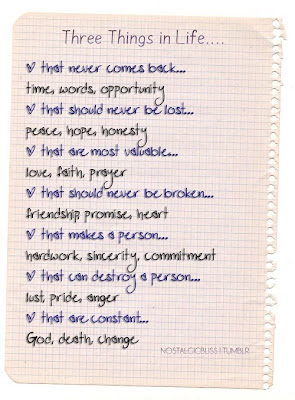 Three Things in Life....
that never comes back...
time, words, opportunity
that should never be lost...
peace, hope, honesty
that are most valuable...
love, faith, prayer
that should never be broken...
friendship promise, heart
that makes a person...
hardwork, sincerity, commitment
that can destroy a person...
lust, pride, anger
that are constant...
God, death, change
NOSTALGICBLISS | TUMBLR